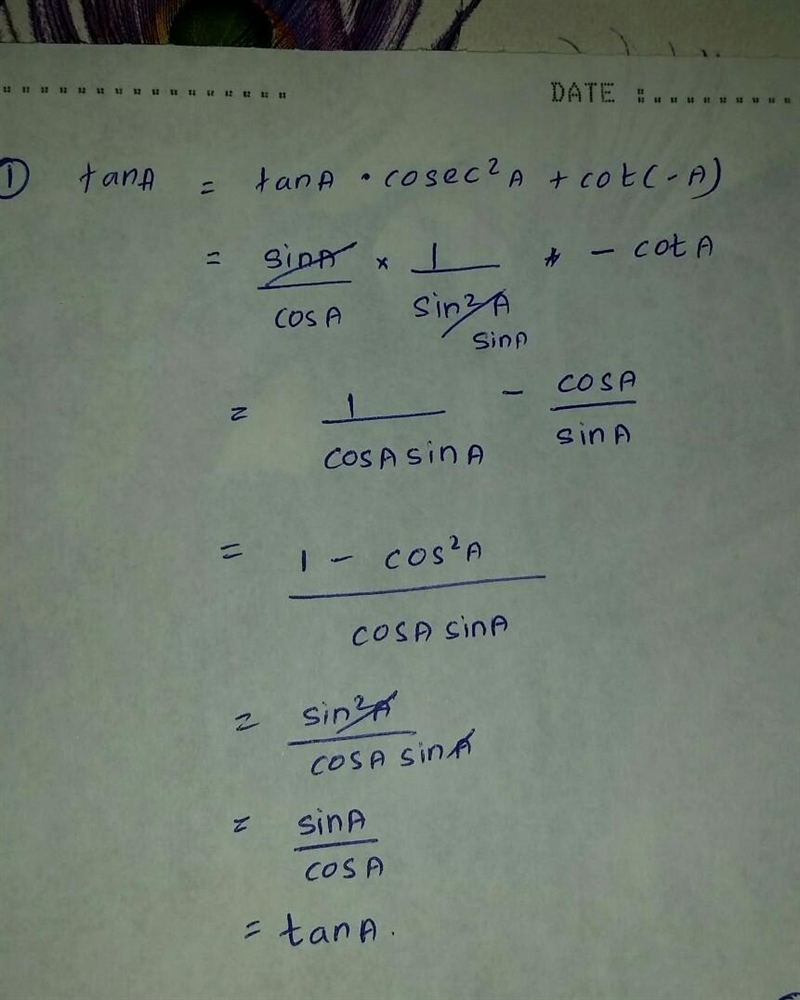 DATE :..........
① tanA = tanA · cosec²A + cot(-A)
= sinA/cosA × 1/sin²A - cotA
sinA
= 1/cosA sinA - cosA/sinA
= 1 - cos²A/cosA sinA
= sin²A/cosA sinA
= sinA/cosA
= tanA.